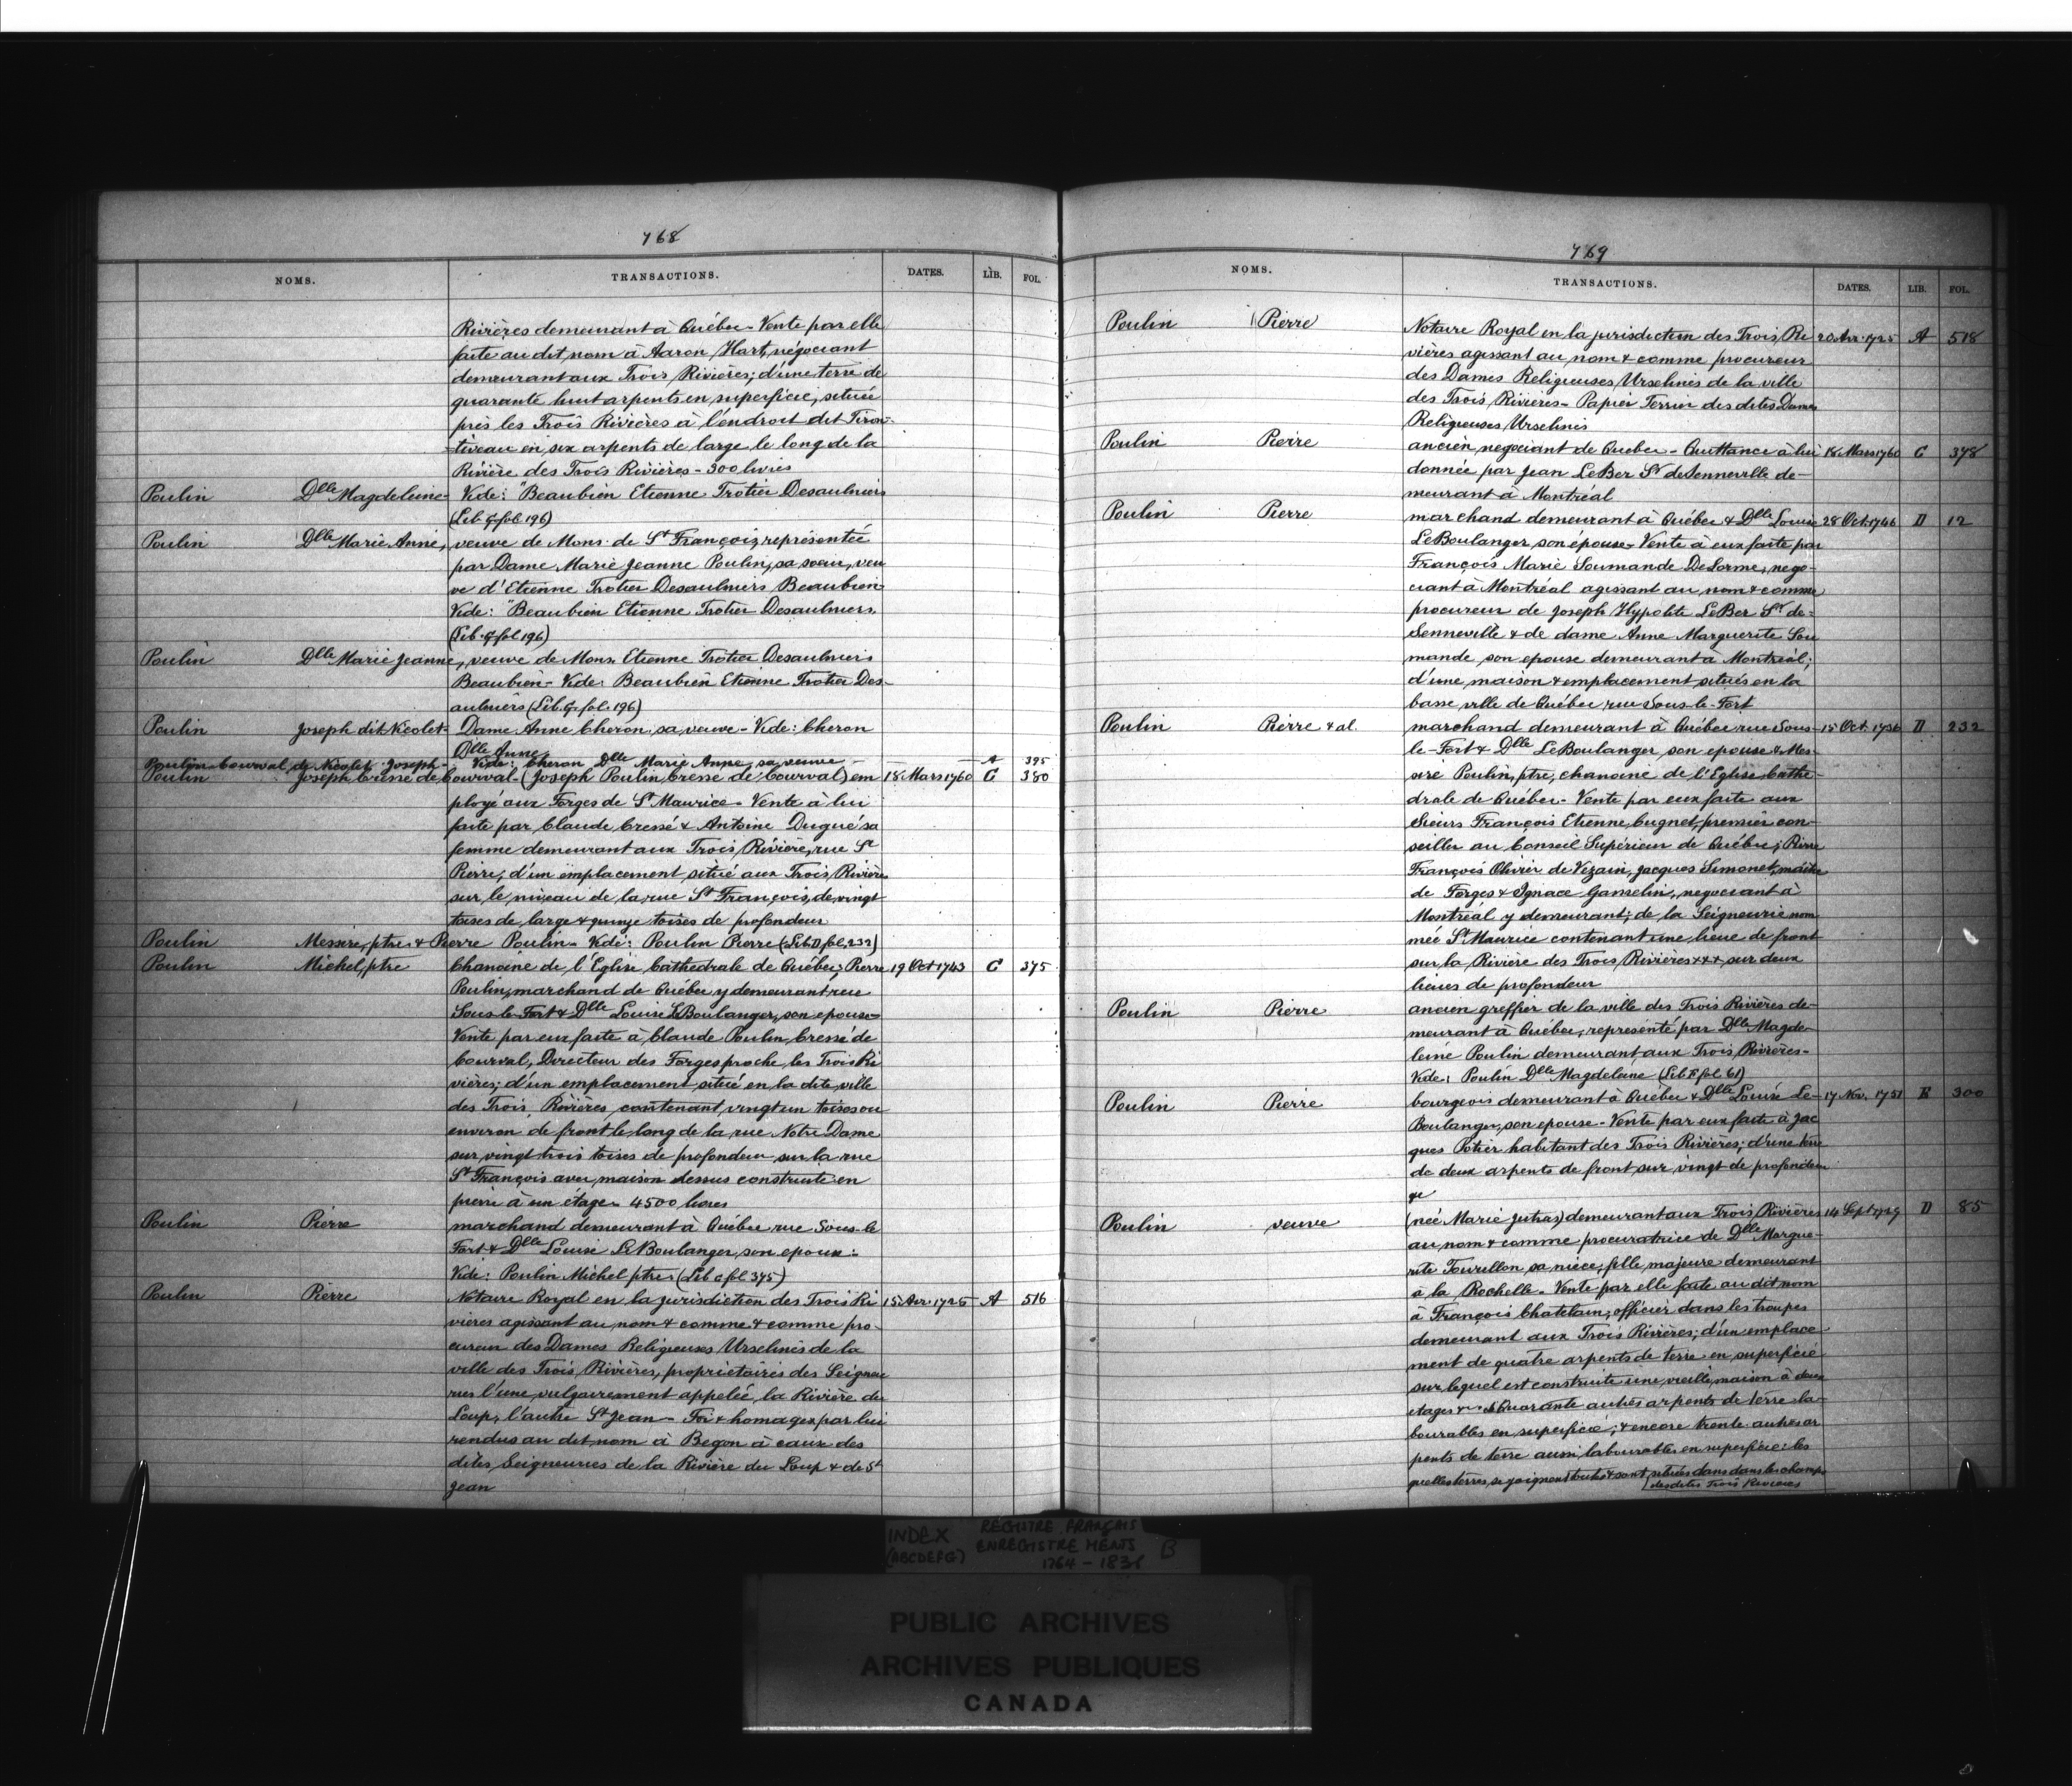 768
NOMS. TRANSACTIONS. DATES. LIB. FOL.
Rivières demeurant à Québec - Vente par elle
faite au dit nom à Aaron Hart, négociant
demeurant aux Trois Rivières; d'une terre de
quarante huit arpents en superficie, située
près les Trois Rivières à l'endroit dit
tiveau en six arpents de large le long de la
Rivière des Trois Rivières - 300 livres
Poulin Dlle Magdeleine - Vide: "Beaubien Etienne Trotier Desaulniers
(Lib. G fol. 196)
Poulin Dlle Marie Anne, veuve de Mons. de St François, représentée
par Dame Marie Jeanne Poulin, sa soeur, veu
ve d'Etienne Trotier Desaulniers Beaubien
Vide: "Beaubien Etienne Trotier Desaulniers
(Lib. G fol 196)
Poulin Dlle Marie Jeanne, veuve de Mons. Etienne Trotier Desaulniers
Beaubien - Vide: Beaubien Etienne Trotier Des-
aulniers (Lib. G. fol. 196)
Poulin Joseph dit Nicolet - Dame Anne Cheron, sa veuve - Vide: Cheron
Dlle Anne
Poulin Courval de Nicolet Joseph - Vide: Cheron Dlle Marie Anne, sa veuve - A 395
Poulin Joseph Cresse de Courval - (Joseph Poulin Cresse de Courval) em 18 Mars 1760 C 380
ployé aux Forges de St Maurice - Vente à lui
faite par Claude Cressé & Antoine Dugué sa
femme demeurant aux Trois Rivière, rue St
Pierre; d'un emplacement situé aux Trois Rivière
sur le niveau de la rue St François, de vingt
toises de large & quinze toises de profondeur
Poulin Messire, ptre & Pierre Poulin - Vide: Poulin Pierre (Lib. D fol. 232)
Poulin Michel, ptre Chanoine de l'Eglise Cathedrale de Québec, Pierre 19 Oct 1743 C 375
Poulin, marchand de Québec y demeurant rue
Sous-le-Fort & Dlle Louise LeBoulanger, son epouse -
Vente par eux faite à Claude Poulin Cressé de
Courval, Directeur des Forges proche les Trois Ri
vières; d'un emplacement situé en la dite ville
des Trois Rivières, contenant vingt un toises ou
environ de front le long de la rue Notre Dame
sur vingt trois toises de profondeur sur la rue
St François avec maison dessus construite en
pierre à un étage - 4500 livres
Poulin Pierre marchand demeurant à Québec rue Sous-le
Fort & Dlle Louise LeBoulanger, son epoux:
Vide: Poulin Michel ptre (Lib C fol 375)
Poulin Pierre Notaire Royal en la jurisdiction des Trois Ri 15 Avr. 1725 A 516
vieres agissant au nom & comme & comme pro-
cureur des Dames Religieuses Urselines de la
ville des Trois Rivières, propriétaires des Seigneu
ries l'une vulgairement appelée, la Rivière du
Loup, l'autre St Jean - Foi & homages par lui
rendus au dit nom à Begon à cause des
dites Seigneuries de la Rivière du Loup & de St
Jean
769
NOMS. TRANSACTIONS. DATES. LIB. FOL.
Poulin Pierre Notaire Royal en la jurisdiction des Trois Ri 20 Avr. 1725 A 518
vières agissant au nom & comme procureur
des Dames Religieuses Urselines de la ville
des Trois Rivières - Papier Terrier des dites Dames
Religieuses Urselines
Poulin Pierre ancien negociant de Quebec - Quittance à lui 18 Mars 1760 C 378
donnée par Jean LeBer Sr de Senneville de-
meurant à Montréal
Poulin Pierre marchand demeurant à Québec & Dlle Louise 28 Oct. 1746 D 12
LeBoulanger son épouse - Vente à eux faite par
François Marie Soumande DeLorme, nego-
ciant à Montréal agissant au nom & comme
procureur de Joseph Hypolite LeBer Sr de-
Senneville & de dame Anne Marguerite Sou
mande son epouse demeurant à Montréal;
d'une maison & emplacement situés en la
basse ville de Québec rue Sous-le-Fort
Poulin Pierre & al. marchand demeurant à Québec rue Sous- 15 Oct. 1736 D 232
le-Fort & Dlle LeBoulanger son epouse & Mes-
sire Poulin, ptre, chanoine de l'Eglise Cathe-
drale de Québec - Vente par eux faite aux
Sieurs François Etienne Cugnet, premier con-
seiller au Conseil Supérieur de Québec; Pierre
François Olivier de Vezain, Jacques Simonet, maitre
de Forges & Ignace Ganselin, negociant à
Montréal y demeurant; de la Seigneurie nom
mée St Maurice contenant une lieue de front
sur la Rivière des Trois Rivières xxx sur deux
lieues de profondeur
Poulin Pierre ancien greffier de la ville des Trois Rivières de-
meurant à Québec, representé par Dlle Magde-
leine Poulin demeurant aux Trois Rivières -
Vide: Poulin Dlle Magdeleine (Lib E fol. 61)
Poulin Pierre bourgeois demeurant à Québec & Dlle Louise Le- 17 Nov. 1751 E 300
Boulanger, son epouse - Vente par eux faite à Jac
ques Potier habitant des Trois Rivières; d'une terre
de deux arpents de front sur vingt de profondeur
&c
Poulin veuve (née Marie Jutras) demeurant aux Trois Rivières 14 Sept 1729 D 85
au nom & comme procuratrice de Dlle Margue-
rite Tourillon sa niece, fille majeure demeurant
à la Rochelle - Vente par elle faite au dit nom
à François Chatelain, officier dans les troupes
demeurant aux Trois Rivières; d'un emplace-
ment de quatre arpents de terre en superficie
sur lequel est construite une vieille maison à deux
etages & quarante autres arpents de terre la-
bourables en superficie; & encore trente autres ar
pents de terre aussi labourables en superficie: les
quelles terres se joignent toutes & sont situées dans dans les champs
des dites Trois Rivières
INDEX REGISTRE FRANÇAIS
(ABCDEFG) ENREGISTREMENTS B
1764 - 1836
PUBLIC ARCHIVES
ARCHIVES PUBLIQUES
CANADA